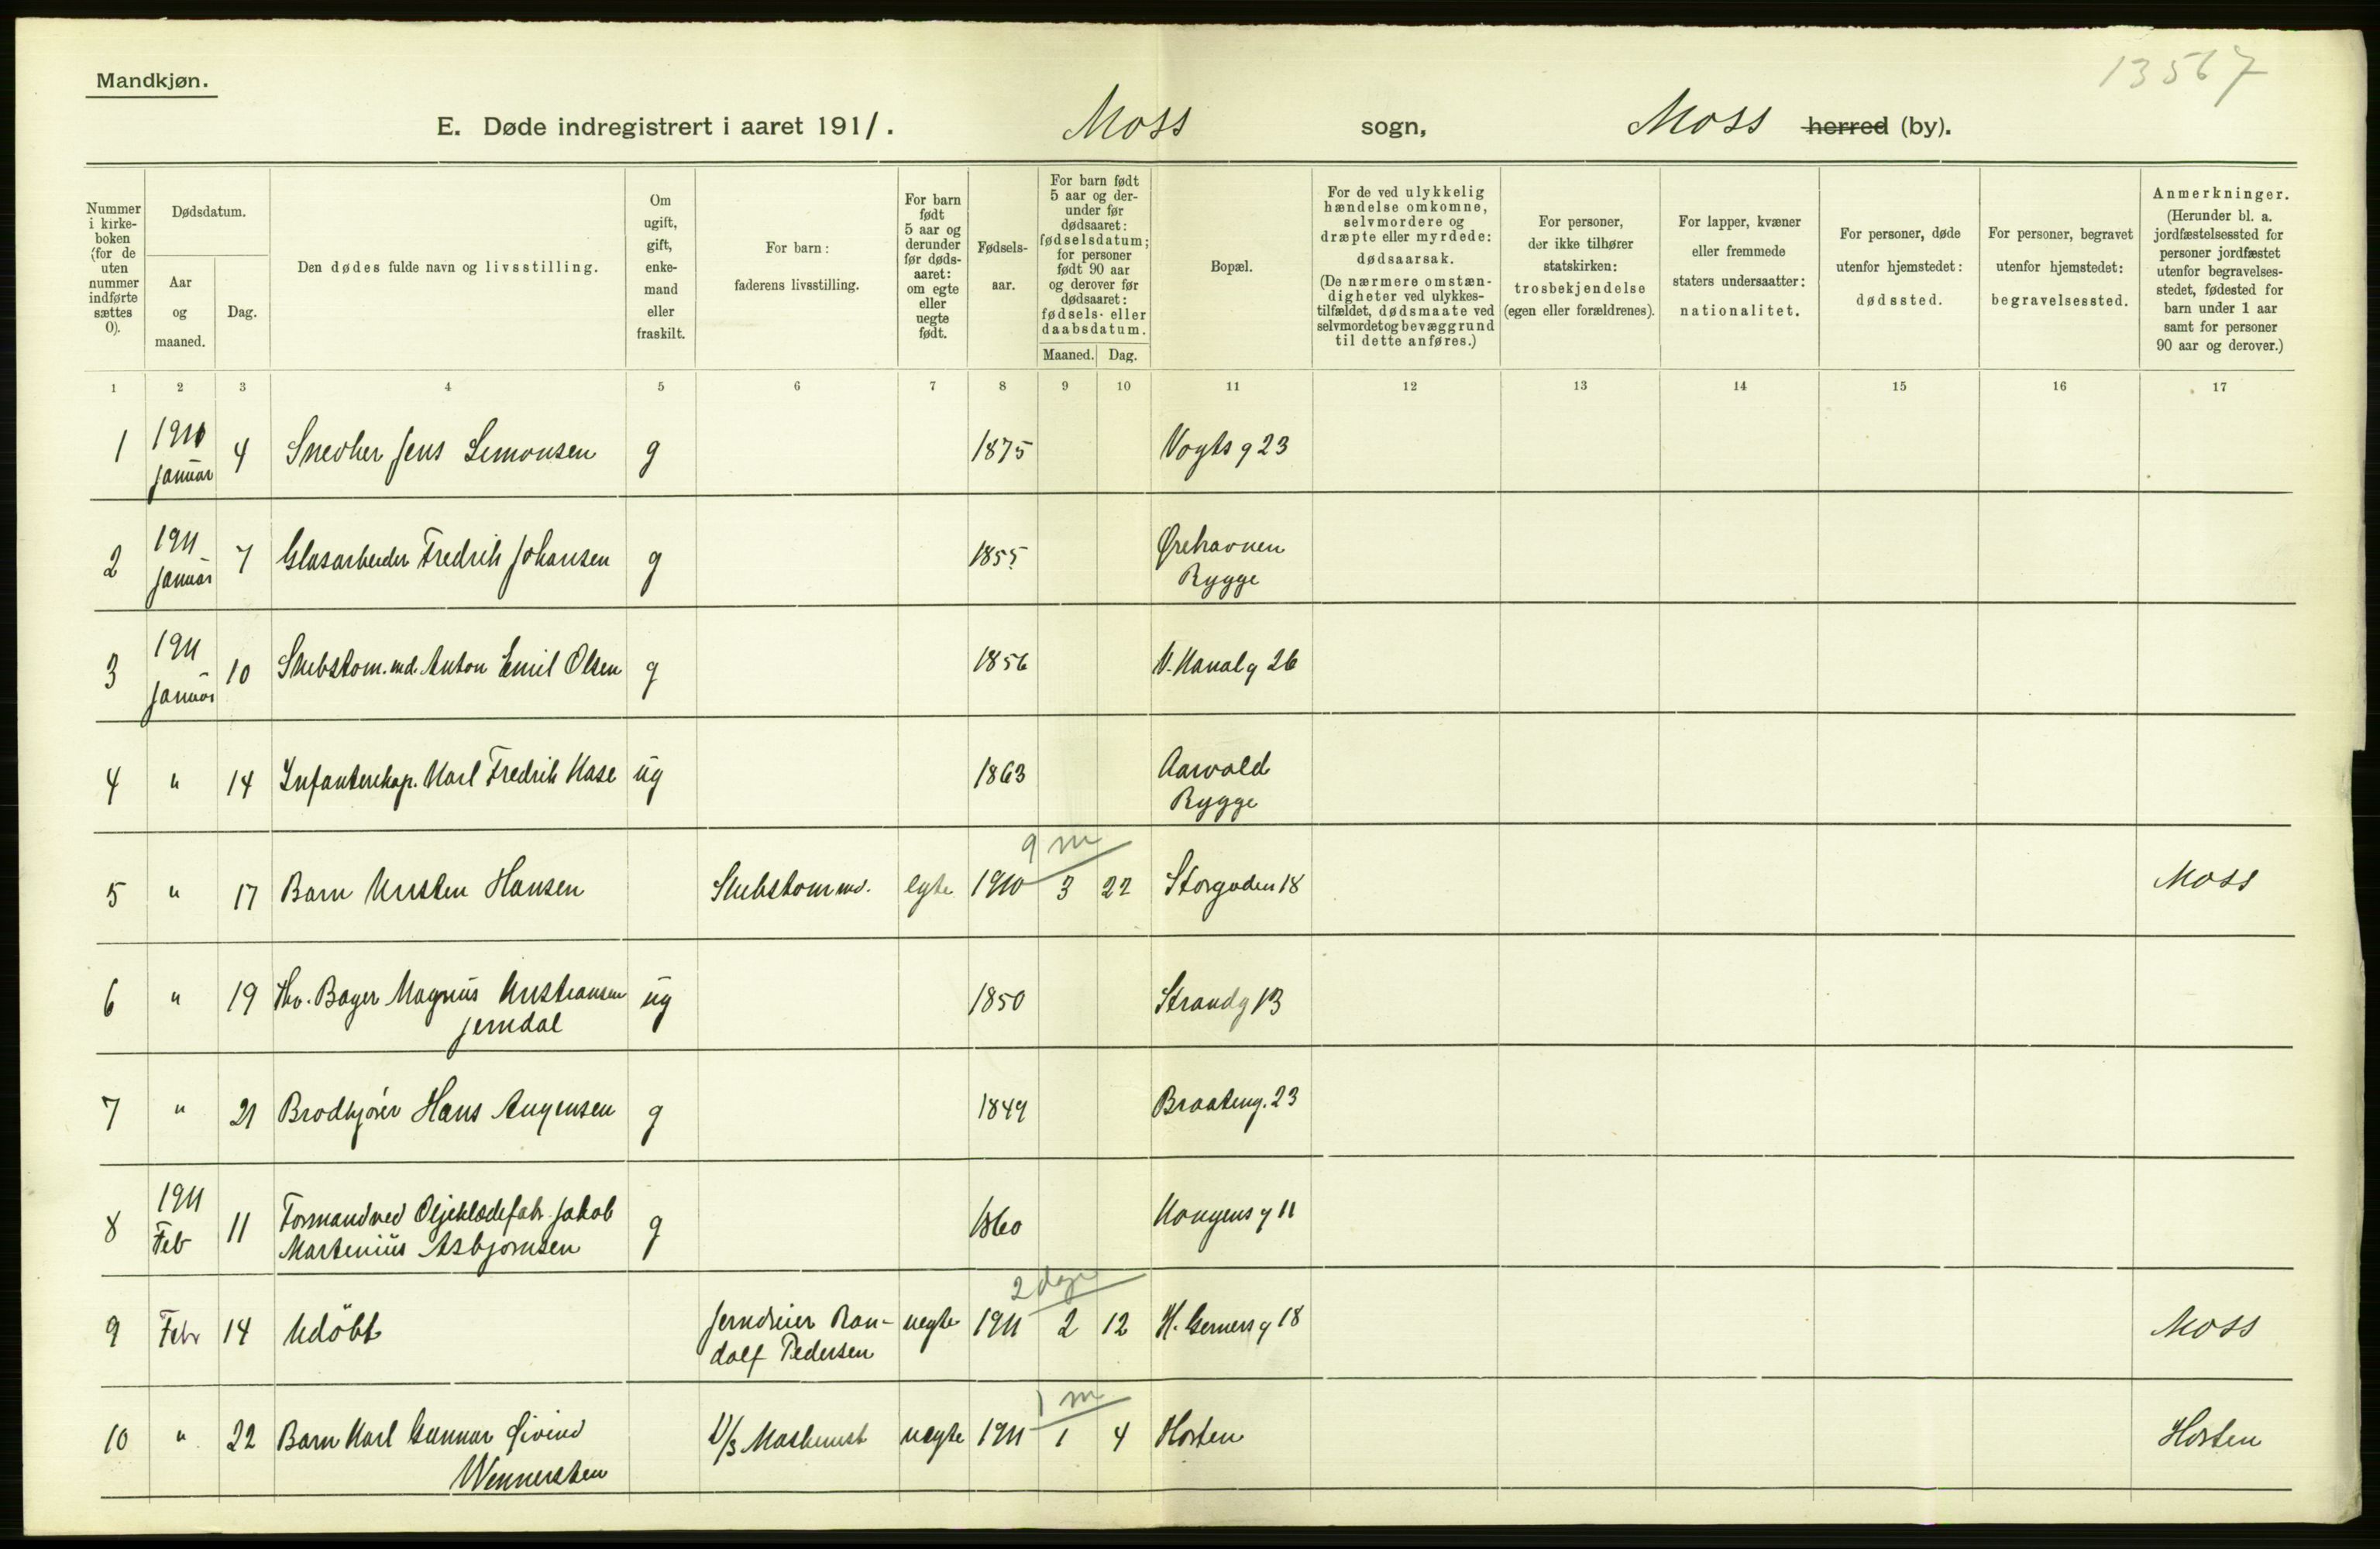 Mandkjøn.
13567
E. Døde indregistrert i aaret 1911. Moss sogn, Moss herred (by).
Nummer i kirke-boken (for de uten nummer indførte sættes 0).
Dødsdatum.
Aar og maaned.
Dag.
Den dødes fulde navn og livsstilling.
Om ugift, gift, enke-mand eller fraskilt.
For barn: faderens livsstilling.
For barn født 5 aar og derunder før døds-aaret: om egte eller uegte født.
Fødsels-aar.
For barn født 5 aar og der-under før dødsaaret: fødselsdatum; for personer født 90 aar og derover før dødsaaret: fødsels- eller daabsdatum.
Maaned. Dag.
Bopæl.
For de ved ulykkelig hændelse omkomne, selvmordere og dræpte eller myrdede: dødsaarsak.
(De nærmere omstæn-digheter ved ulykkes-tilfældet, dødsmaate ved selvmord et og bevæggrund til dette anføres.)
For personer, der ikke tilhører statskirken: trosbekjendelse (egen eller forældrenes).
For lapper, kvæner eller fremmede staters undersaatter: nationalitet.
For personer, døde utenfor hjemstedet: dødssted.
For personer, begravet utenfor hjemstedet: begravelsessted.
Anmerkninger.
(Herunder bl. a. jordfæstelsessted for personer jordfæstet utenfor begravelses-stedet, fødested for barn under 1 aar samt for personer 90 aar og derover.)
1 2 3 4 5 6 7 8 9 10 11 12 13 14 15 16 17
1 1910 januar 4 Snedker Jens Simonsen g 1875 Vogts g 23
2 1911 januar 7 Glasarbeider Fredrik Johansen g 1855 Ørehavnen Rygge
3 1911 januar 10 Skibstøm.md. Anton Emil Olsen g 1856 V. Kanalg 26
4 " 14 Infanterikap. Karl Fredrik Kase ug 1863 Aarvold Rygge
9 m
5 " 17 Barn Kristen Hansen Skibstømmd. egte 1910 3 22 Storgaden 18 Moss
6 " 19 Fhv. Bager Magnus Kristiansen Jerndal ug 1850 Strandg 13
7 " 21 Brødkjører Hans Augensen g 1849 Braateng. 23
8 1911 Feb 11 Formand ved Oljeklædefabr. Jakob Martenius Asbjørnsen g 1860 Kongens g 11
2 dage
9 Febr 14 Udøbt Jerndreier Ran-dolf Pedersen uegte 1911 2 12 H. Gerners g 18 Moss
1 m
10 " 22 Barn Karl Gunnar Eivind Wennersten D/s Maskinist uegte 1911 1 4 Horten Horten